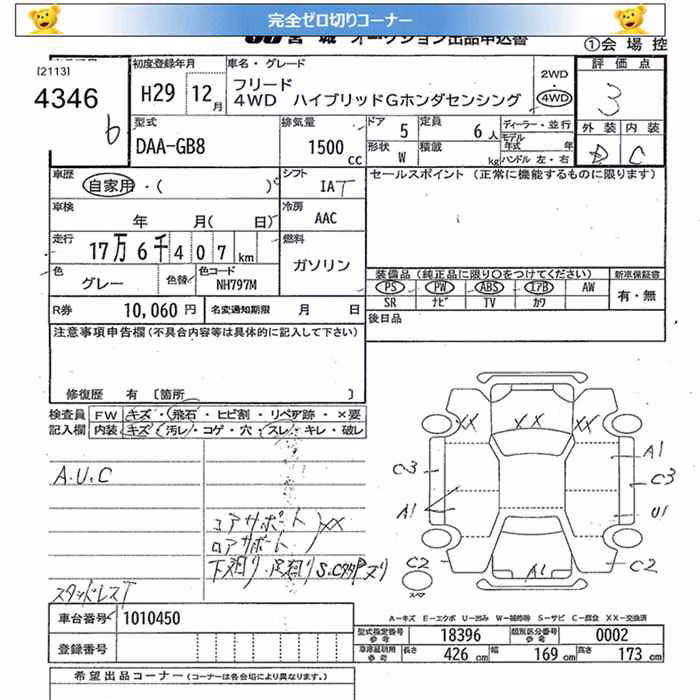 完全ゼロ切りコーナー
JU宮城 オークション出品申込書
①会場控
[2113]
4346
6
初度登録年月
H29 12月
車名・グレード
フリード
4WD ハイブリッドGホンダセンシング
2WD
4WD
評価点
3
外装 内装
D C
型式
DAA-GB8
排気量
1500 cc
ドア 5
定員 6人
形状 W
積載 kg
ディーラー・並行
モデル
年式 年
ハンドル 左・右
車歴
自家用・( )
シフト
IAT
セールスポイント(正常に機能するものに限ります)
車検
年 月(日)
冷房
AAC
走行
17万6千407km
燃料
ガソリン
色
グレー
色替
色コード
NH797M
装備品(純正品に限り○をつけてください)
新車保証書
PS PW ABS エアB AW
SR ナビ TV カワ
有・無
R券
10,060円
名変通知期限 月 日
後日品
注意事項申告欄(不具合内容等は具体的に記入して下さい)
修復歴 有 [箇所 ]
検査員
記入欄
FW キズ・飛石・ヒビ割・リペア跡・×要
内装 キズ・汚レ・コゲ・穴・スレ・キレ・破レ
A.U.C
コアサポート
ロアサポート
XX
下廻り・足廻りS.C
スタッドレスT
XX XX XX
A1
C3
C3
A1
U1
C2
A1
C2
スペア
A-キズ E-エクボ U-凹み W-補修跡 S-サビ C-腐食 XX-交換済
車台番号
1010450
登録番号
型式指定番号
参考
18396
類別区分番号
参考
0002
車庫証明用
参考
長さ 426cm
幅 169cm
高さ 173cm
希望出品コーナー(コーナーは各会場により異なります。)